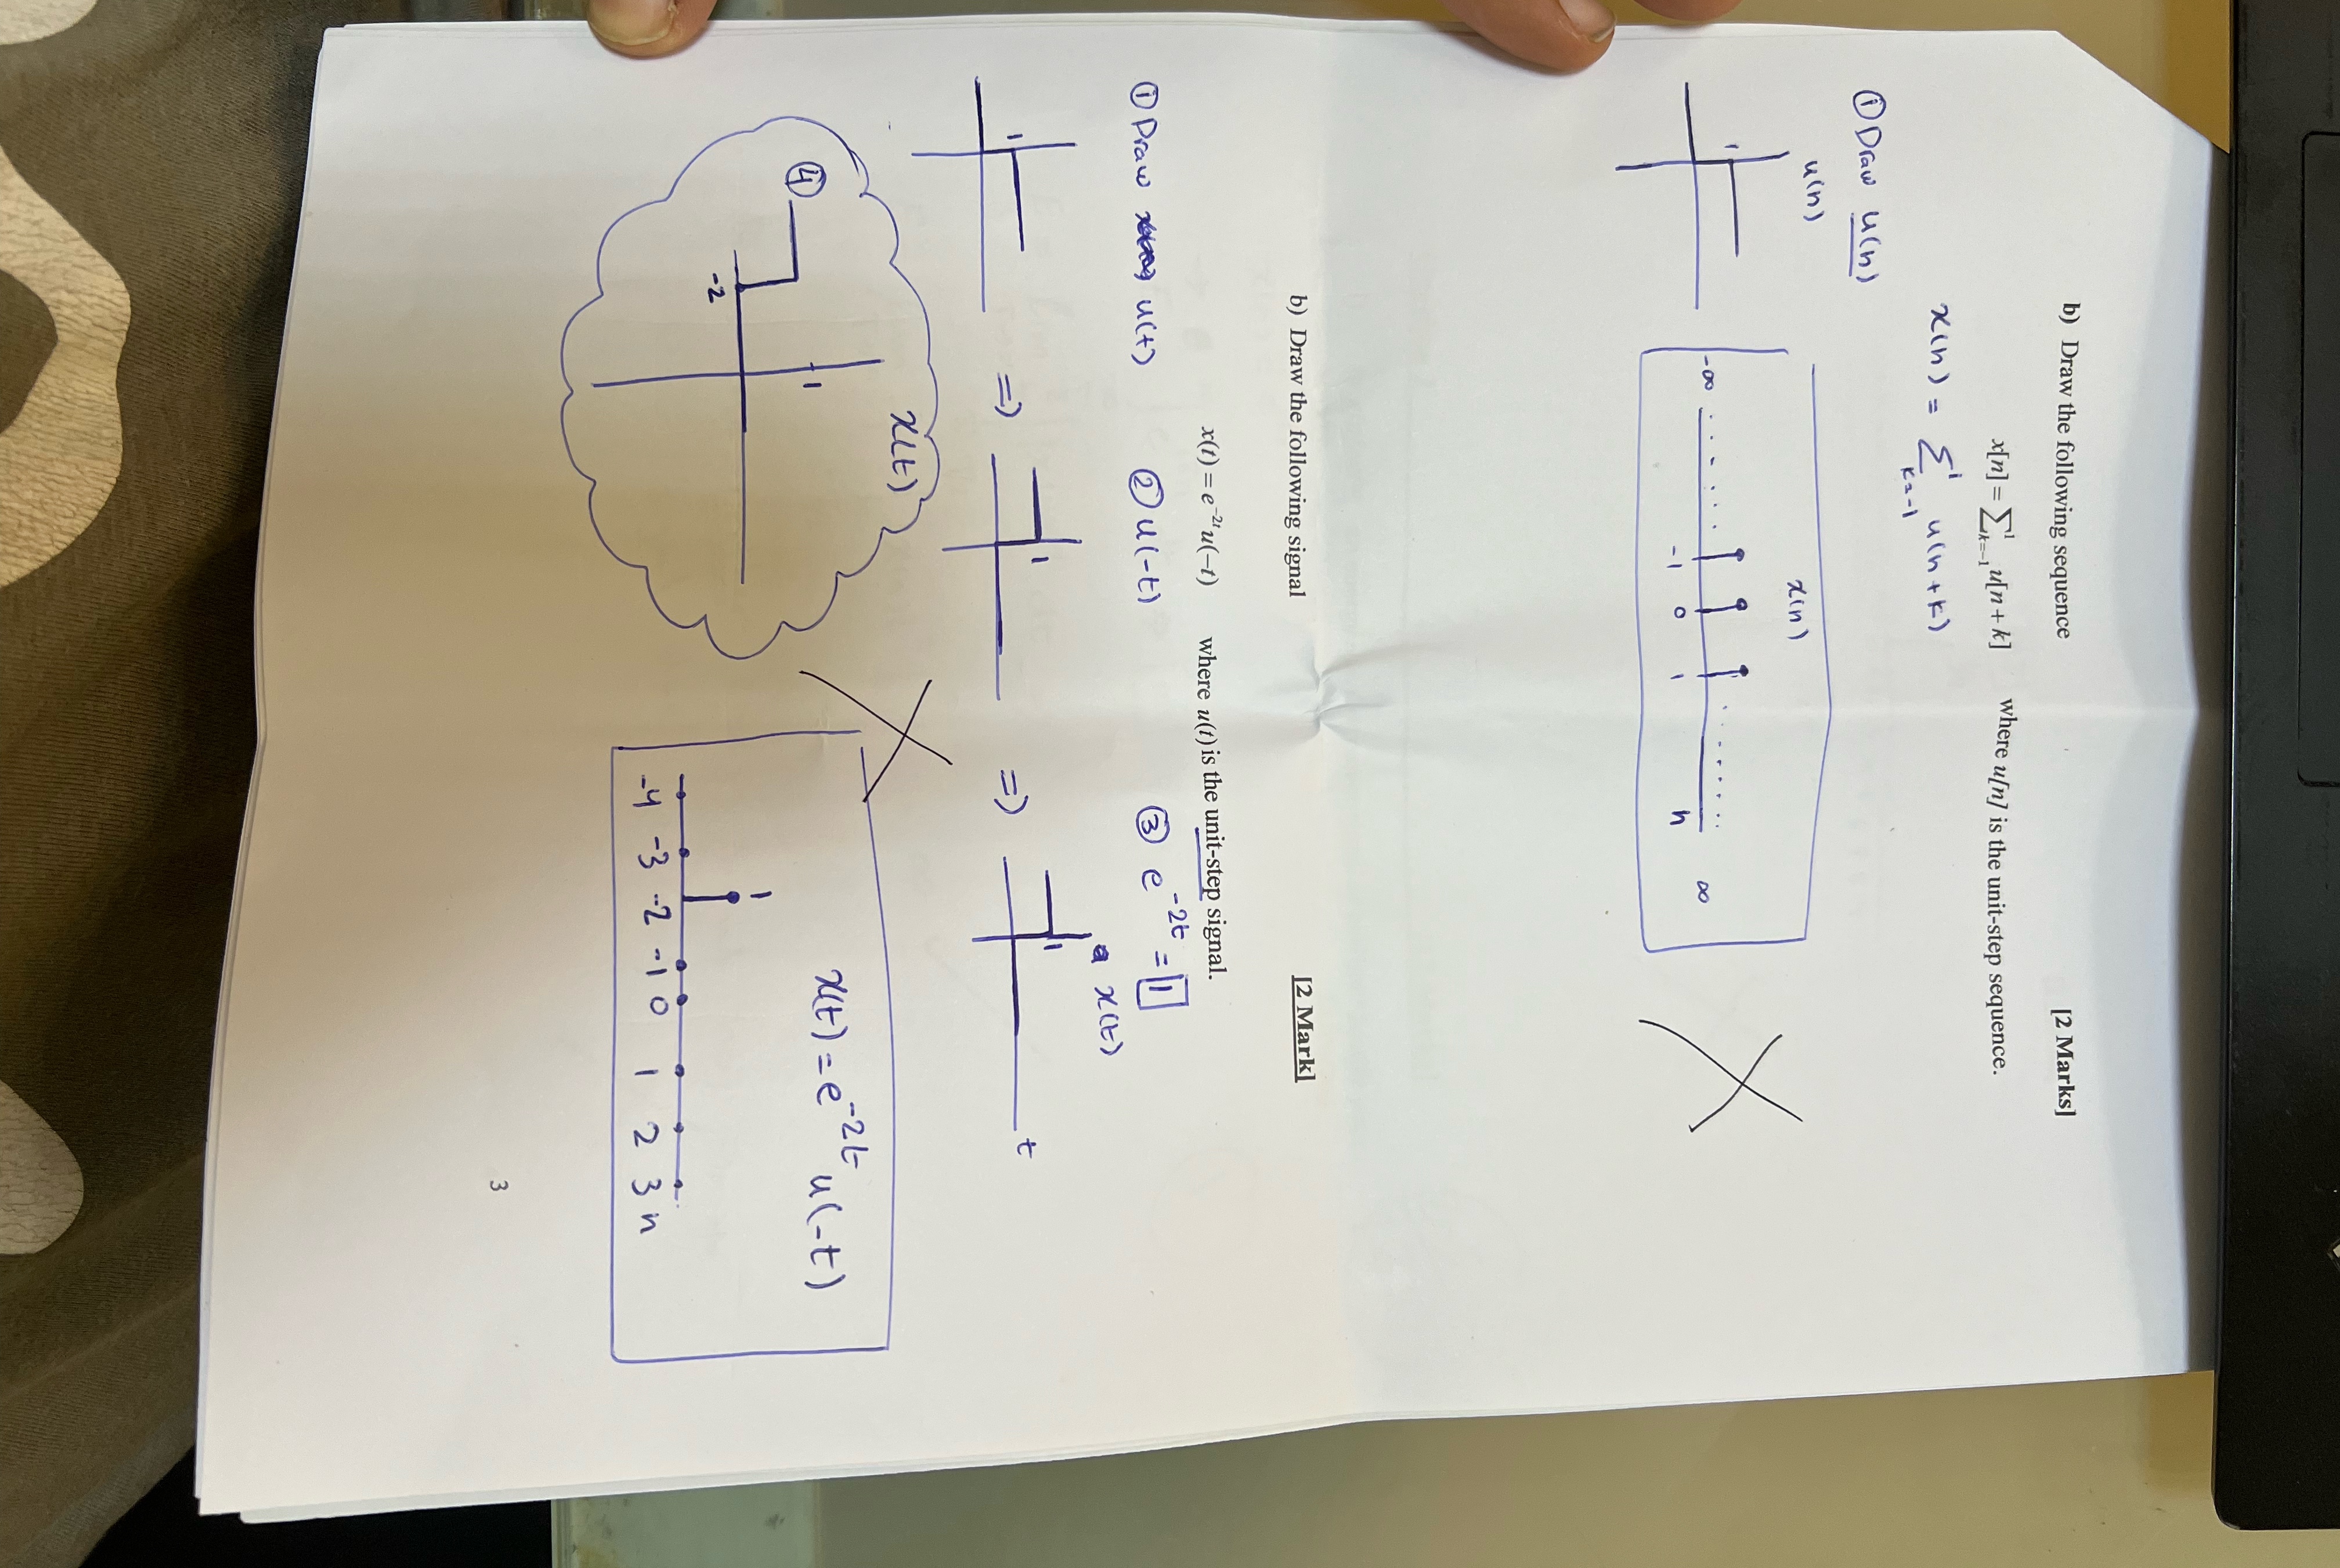 b) Draw the following sequence [2 Marks]
x[n] = ∑¹ₖ₌₋₁ u[n + k] where u[n] is the unit-step sequence.
x(n) = ∑¹ₖ₌₋₁ u(n+k)
① Draw u(n)
u(n)
1
x(n)
-∞ ....... -1 0 1 ....... n ∞
b) Draw the following signal [2 Mark]
x(t) = e⁻²ᵗu(−t) where u(t) is the unit-step signal.
① Draw u(t) ② u(-t) ③ e⁻²ᵗ = 1
x(t)
1 => 1 => 1 t
④ x(t)
1
-2
x(t) = e⁻²ᵗ u(-t)
1
-4 -3 -2 -1 0 1 2 3 n
3